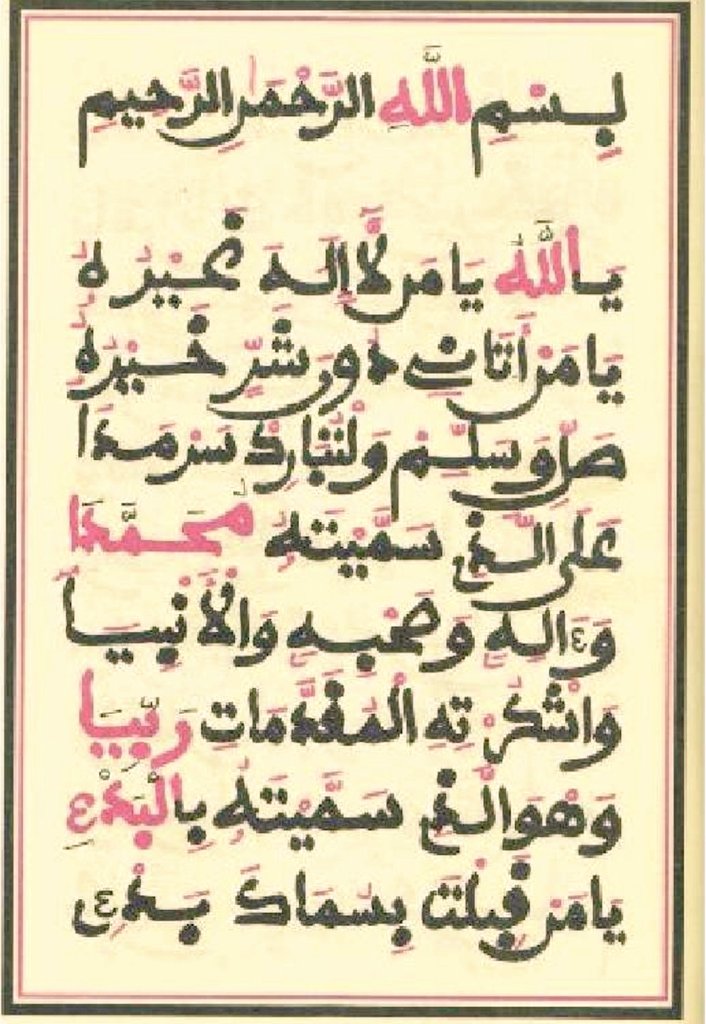 بِسْمِ اللَّهِ الرَّحْمَنِ الرَّحِيمِ
يَا اللَّهُ يَا مَن لَّا إِلَهَ غَيْرُهُ
يَا مَنْ أَتَانِي دُونَ شَرٍّ خَيْرُهُ
صَلِّ وَسَلِّمْ وَلْتُبَارِكْ سَرْمَدَا
عَلَى الَّذِي سَمَّيْتَهُ مُحَمَّدَا
وَءَالِهِ وَصَحْبِهِ وَالْأَنْبِيَا
وَاشْكُرْ لَهِ الْمُقَدَّمَاتِ رَبِّيَا
وَهْوَ الَّذِي سَمَّيْتَهُ بِالْبَدْءِ
يَا مَن قَبِلْتَ بِسُمَاكَ بَدْءِي